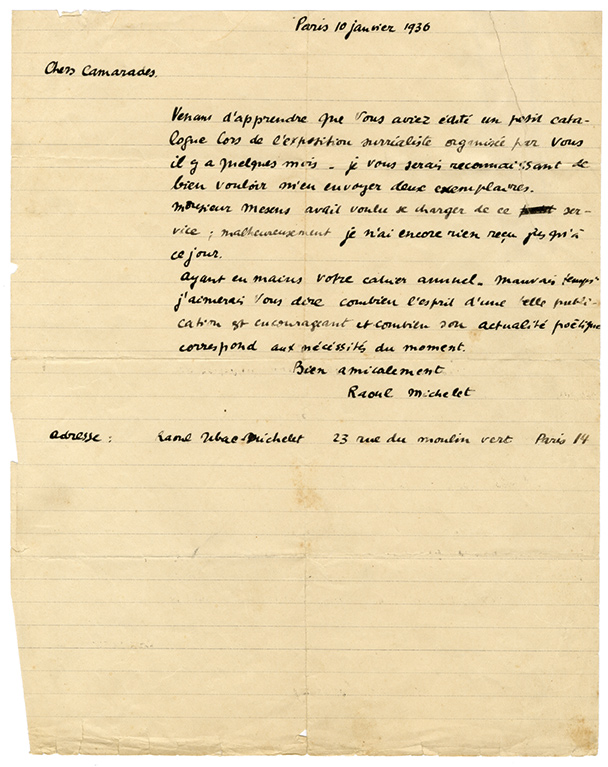 Paris 10 janvier 1936
Chers Camarades.
Venant d'apprendre que vous aviez édité un petit cata-
logue lors de l'exposition surréaliste organisée par vous
il y a quelques mois - je vous serais reconnaissant de
bien vouloir m'en envoyer deux exemplaires.
Monsieur Mesens avait voulu se charger de ce ser-
vice ; malheureusement je n'ai encore rien reçu jusqu'à
ce jour.
Ayant en mains votre cahier annuel - mauvais temps
j'aimerais vous dire combien l'esprit d'une telle publi-
cation est encourageant et combien son actualité poëtique
correspond aux nécessités du moment.
Bien amicalement
Raoul Michelet
adresse : Raoul Ubac-Michelet 23 rue du moulin vert Paris 14